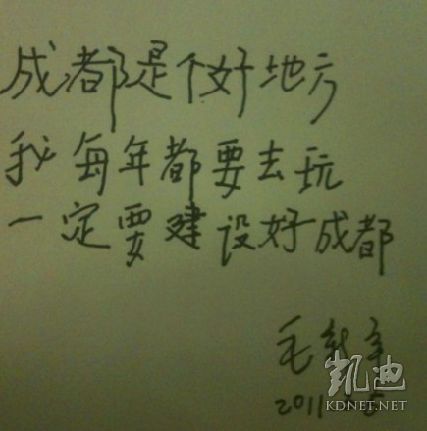 成都是个好地方
我每年都要去玩
一定要建设好成都
毛新宇
2011
凯迪
KDNET.NET